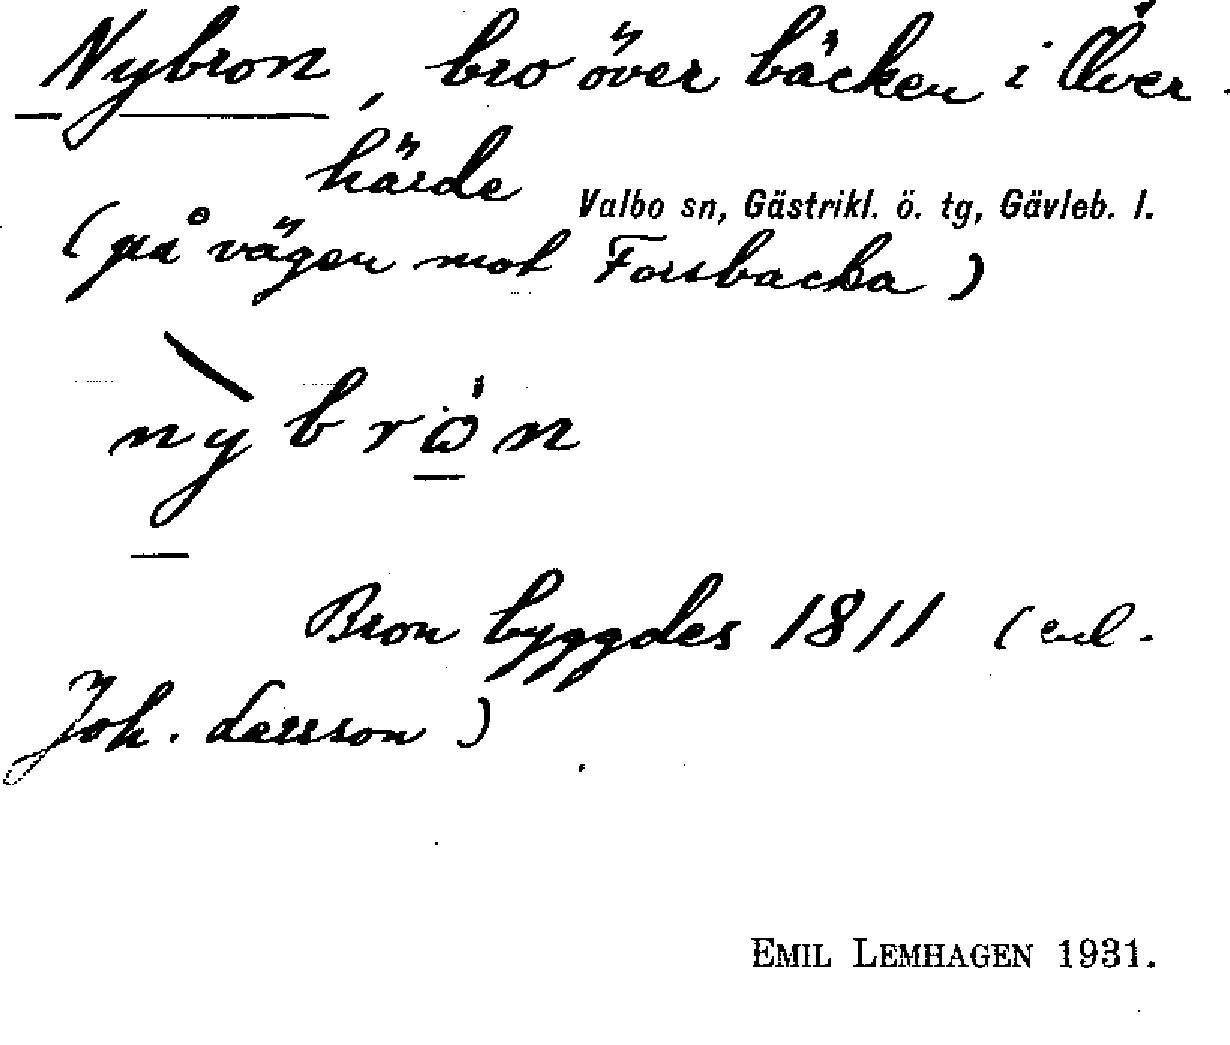 Nybron, bro över bäcken i Över-
härde
Valbo sn, Gästrikl. ö. tg, Gävleb. l.
(på vägen mot Forsbacka)
nybrön
Bron byggdes 1811 (enl.
Joh. Larsson)
EMIL LEMHAGEN 1931.